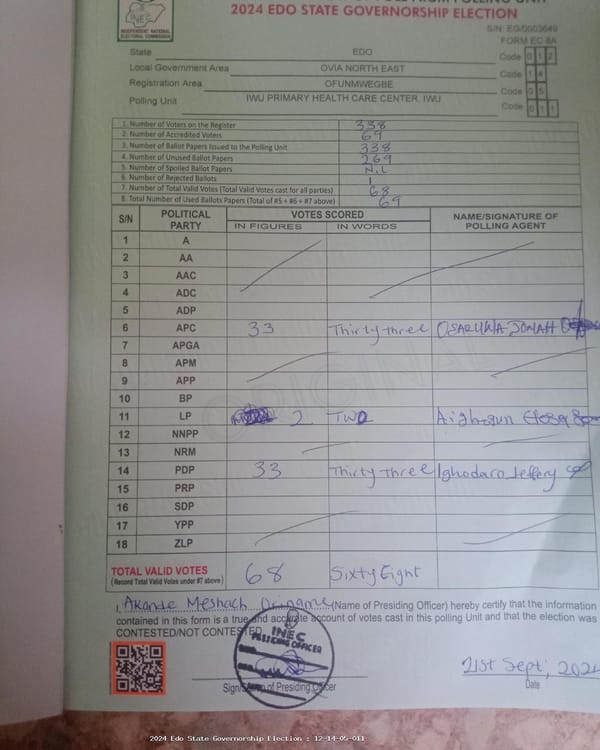 INEC
INDEPENDENT NATIONAL
ELECTORAL COMMISSION
2024 EDO STATE GOVERNORSHIP ELECTION
S/N: EG/0003649
FORM EC 8A
State EDO Code 0 1 2
Local Government Area OVIA NORTH EAST Code 1 4
Registration Area OFUNMWEGBE Code 0 5
Polling Unit IWU PRIMARY HEALTH CARE CENTER, IWU Code 0 1 1
1. Number of Voters on the Register 338
2. Number of Accredited Voters 69
3. Number of Ballot Papers Issued to the Polling Unit 338
4. Number of Unused Ballot Papers 269
5. Number of Spoiled Ballot Papers NIL
6. Number of Rejected Ballots 1
7. Number of Total Valid Votes (Total Valid Votes cast for all parties) 68
8. Total Number of Used Ballots Papers (Total of #5 + #6 + #7 above) 69
S/N POLITICAL PARTY VOTES SCORED NAME/SIGNATURE OF POLLING AGENT
IN FIGURES IN WORDS
1 A
2 AA
3 AAC
4 ADC
5 ADP
6 APC 33 Thirty three OSARUWA JONAH
7 APGA
8 APM
9 APP
10 BP
11 LP 2 TWO Aighogun Efosa
12 NNPP
13 NRM
14 PDP 33 Thirty three Ighodaro Jeffery
15 PRP
16 SDP
17 YPP
18 ZLP
TOTAL VALID VOTES 68 Sixty Eight
(Record Total Valid Votes under #7 above)
I, Akande Meshach (Name of Presiding Officer) hereby certify that the information
contained in this form is a true and accurate account of votes cast in this polling Unit and that the election was
CONTESTED/NOT CONTESTED.
INEC
PRESIDING OFFICER
of Presiding Officer
21st Sept, 2024
Date
2024 Edo State Governorship Election : 12-14-05-011